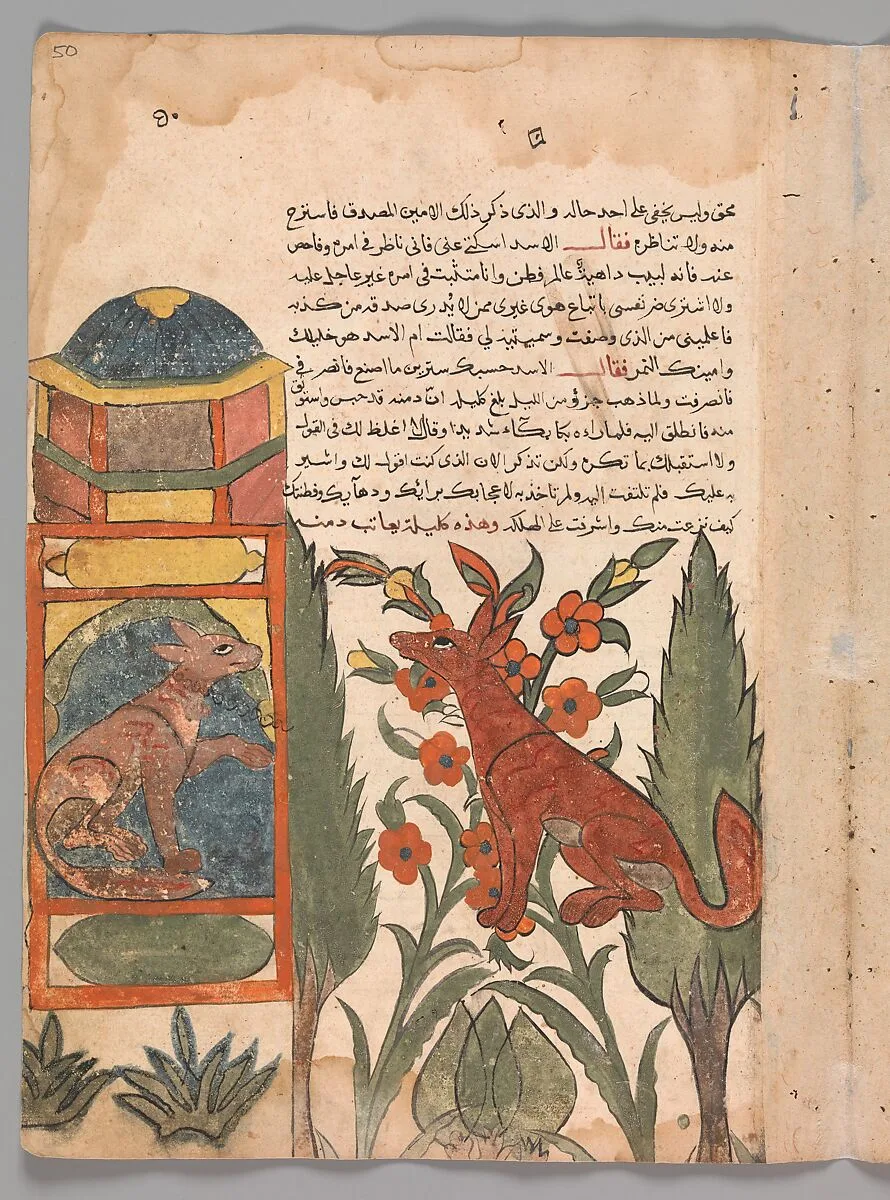 50
٥٠
محق وليس يخفى على احد حاله والذى ذكر ذلك الامين المصدق فاسترح
منه ولا تناظره فقال الاسد اسكتى عنى فانى ناظر فى امره وفاحص
عنه فانه لبيب داهية عالم فطن وانا متثبت فى امره غير عاجل عليه
ولا اشترى ضر نفسى باتباع هوى غيرى ممن لا يُدرى صدقه من كذبه
فاعلمينى من الذى وصفت وسميتيه لى فقالت ام الاسد هو خليلك
وامينك النمر فقال الاسد حسبك سترين ما اصنع فانصرفى
فانصرفت ولما ذهب جزؤ من الليل بلغ كليلة انّ دمنه قد حبس واستوثق
منه فانطلق اليه فلما راءه بكا بكآء شديدا وقال لا اغلظ لك فى القول
ولا استقبلك بما تكره ولكن تذكر الان الذى كنت اقول لك واشير
به عليك فلم تلتفت اليه ولم تاخذ به لاعجابك برايك ودهآيك وفطنتك
كيف نزعت منك واشرفت على الهلكه وهذه كليلة يعاتب دمنه